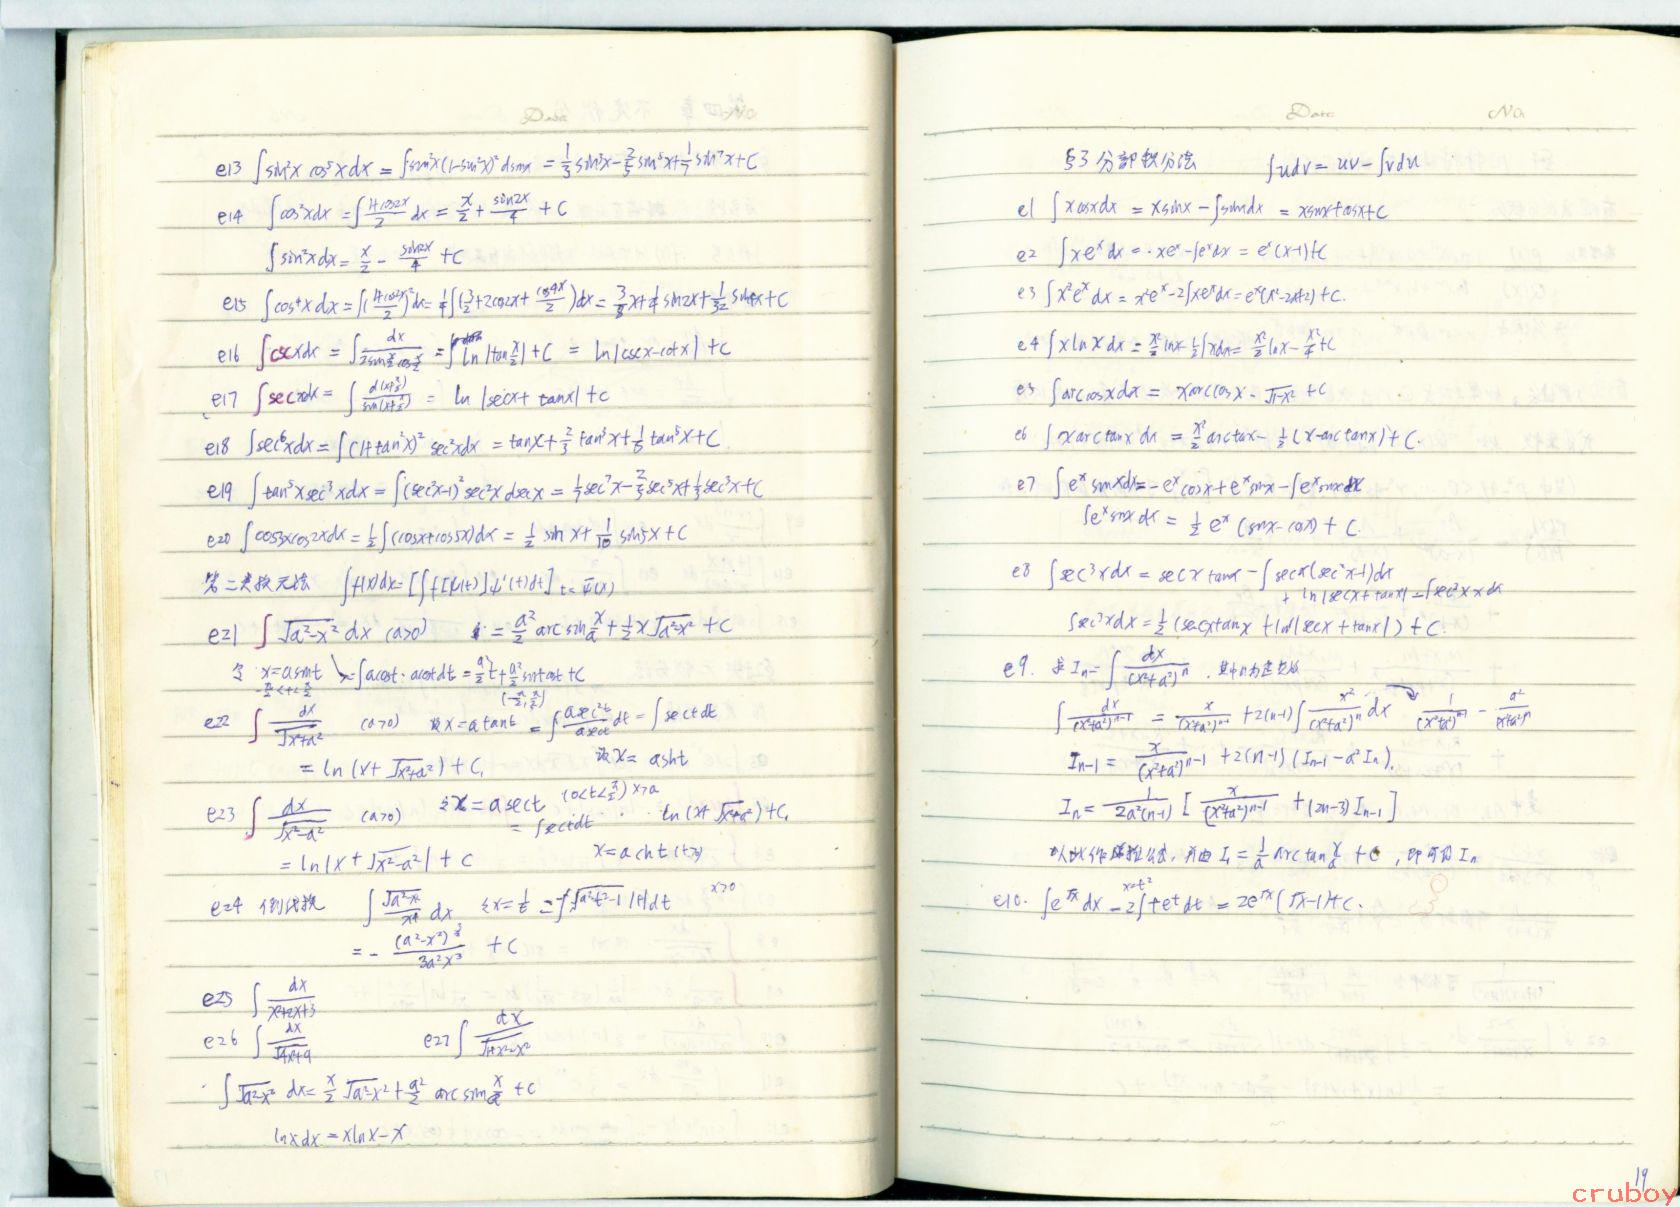 Date No
e13 ∫sin²x cos⁵x dx = ∫sin²x(1-sin²x)² dsinx = 1/3 sin³x - 2/5 sin⁵x + 1/7 sin⁷x + C
e14 ∫cos²xdx = ∫(1+cos2x)/2 dx = x/2 + sin2x/4 + C
∫sin²xdx = x/2 - sin2x/4 + C
e15 ∫cos⁴x dx = ∫((1+cos2x)/2)²dx = 1/4∫(3/2+2cos2x+cos4x/2)dx = 3/8 x + 1/4 sin2x + 1/32 sin4x + C
e16 ∫cscxdx = ∫dx/(2sin x/2 cos x/2) = ln|tan x/2| + C = ln|cscx-cotx| + C
e17 ∫secxdx = ∫d(x+π/2)/sin(x+π/2) = ln|secx+tanx| + C
e18 ∫sec⁶xdx = ∫(1+tan²x)² sec²xdx = tanx + 2/3 tan³x + 1/5 tan⁵x + C
e19 ∫tan⁵x sec³xdx = ∫(sec²x-1)² sec²x dsecx = 1/7 sec⁷x - 2/5 sec⁵x + 1/3 sec³x + C
e20 ∫cos3xcos2xdx = 1/2∫(cosx+cos5x)dx = 1/2 sinx + 1/10 sin5x + C
第二类换元法 ∫f(x)dx = [∫f[ψ(t)]ψ'(t)dt] t=ψ̄(x)
e21 ∫√(a²-x²) dx (a>0) = a²/2 arcsin x/a + 1/2 x√(a²-x²) + C
令 x=asint = ∫acost·acostdt = a²/2 t + a²/2 sintcost + C
-π/2<t<π/2 (-π/2, π/2)
e22 ∫dx/√(x²+a²) (a>0) 设x=atant = ∫asec²t/asect dt = ∫sectdt
= ln(x+√(x²+a²)) + C₁ 设x=asht
e23 ∫dx/√(x²-a²) (a>0) 令x=asect (0<t<π/2) x>a
= ∫sectdt ln(x+√(x²+a²))+C₁
= ln|x+√(x²-a²)| + C x=acht (t>0)
e24 倒代换 ∫√(a²-x²)/x⁴ dx 令x=1/t = -∫√(a²t²-1)|t|dt x>0
= -(a²-x²)^(3/2)/3a²x³ + C
e25 ∫dx/(x²+2x+3)
e26 ∫dx/√(4x²+9) e27 ∫dx/√(1+x-x²)
∫√(a²-x²) dx = x/2 √(a²-x²) + a²/2 arcsin x/a + C
lnxdx = xlnx - x
Date No
§3 分部积分法 ∫udv = uv - ∫vdu
e1 ∫xcosxdx = xsinx - ∫sinxdx = xsinx+cosx+C
e2 ∫xeˣdx = xeˣ - ∫eˣdx = eˣ(x-1)+C
e3 ∫x²eˣdx = x²eˣ - 2∫xeˣdx = eˣ(x²-2x+2)+C.
e4 ∫xlnxdx = x²/2 lnx - 1/2∫xdx = x²/2 lnx - x²/4 + C
e5 ∫arccosxdx = xarccosx - √(1-x²) + C
e6 ∫xarctanxdx = x²/2 arctanx - 1/2(x-arctanx) + C.
e7 ∫eˣsinxdx = -eˣcosx + eˣsinx - ∫eˣsinxdx
∫eˣsinxdx = 1/2 eˣ(sinx-cosx) + C.
e8 ∫sec³xdx = secxtanx - ∫secx(sec²x-1)dx
+ ln|secx+tanx| - ∫sec³xdx
∫sec³xdx = 1/2(secxtanx + ln|secx+tanx|) + C.
e9. 求Iₙ = ∫dx/(x²+a²)ⁿ, 其中n为正整数
∫dx/(x²+a²)ⁿ⁻¹ = x/(x²+a²)ⁿ⁻¹ + 2(n-1)∫x²/(x²+a²)ⁿ dx 1/(x²+a²)ⁿ⁻¹ - a²/(x²+a²)ⁿ
Iₙ₋₁ = x/(x²+a²)ⁿ⁻¹ + 2(n-1)(Iₙ₋₁ - a²Iₙ).
Iₙ = 1/2a²(n-1) [x/(x²+a²)ⁿ⁻¹ + (2n-3)Iₙ₋₁]
以此作递推公式, 并由 I₁ = 1/a arctan x/a + C, 即可得Iₙ
e10. ∫e^√x dx x=t² 2∫teᵗdt = 2e^√x(√x-1)+C.
19
cruboy